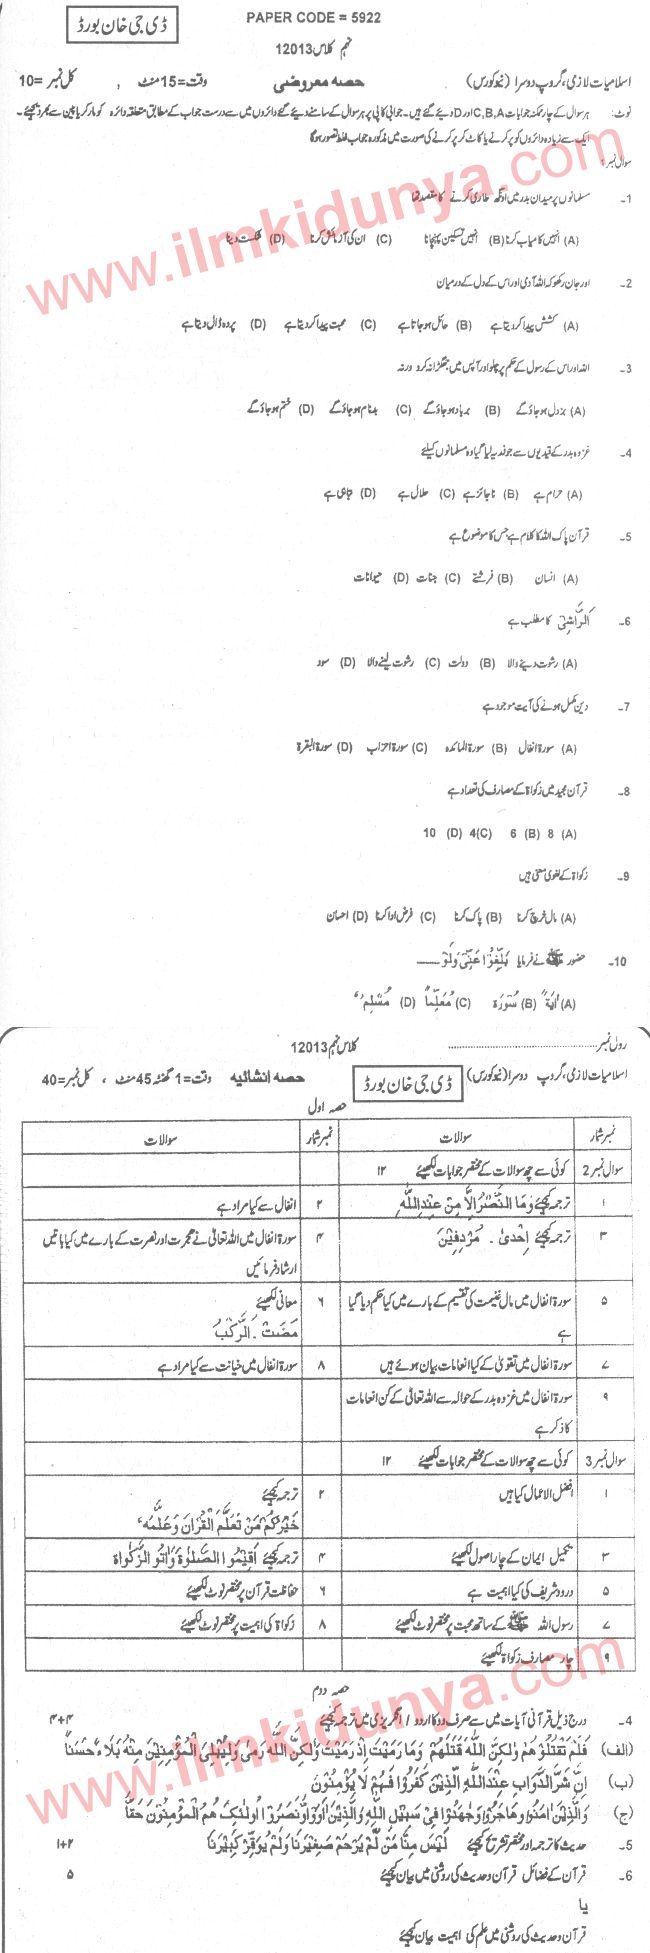 ڈی جی خان بورڈ
PAPER CODE = 5922
نہم کلاس 12013
اسلامیات لازمی، گروپ دوسرا (نیوکورس) حصہ معروضی وقت=15 منٹ ، کل نمبر=10
نوٹ: ہر سوال کے چار ممکنہ جوابات A,B,C اور D دیئے گئے ہیں۔ جوابی کاپی پر ہر سوال کے سامنے دیئے گئے دائروں میں سے درست جواب کے مطابق متعلقہ دائرہ کو مارکر یا پین سے بھر دیجئے۔
ایک سے زیادہ دائروں کو پر کرنے یا کاٹ کر پر کرنے کی صورت میں مذکورہ جواب غلط تصور ہوگا
سوال نمبر 1
1۔ مسلمانوں پر میدان بدر میں اونگھ طاری کرنے کا مقصد تھا
(A) انہیں کامیاب کرنا (B) انہیں تسکین پہنچانا (C) ان کی آزمائش کرنا (D) شکست دینا
2۔ اور جان رکھو کہ اللہ آدمی اور اس کے دل کے درمیان
(A) کشش پیدا کردیتا ہے (B) حائل ہوجاتا ہے (C) محبت پیدا کردیتا ہے (D) پردہ ڈال دیتا ہے
3۔ اللہ اور اس کے رسول کے حکم پر چلو اور آپس میں جھگڑا نہ کرو ورنہ
(A) بزدل ہوجاؤ گے (B) برباد ہوجاؤ گے (C) بدنام ہوجاؤ گے (D) ختم ہوجاؤ گے
4۔ غزوہ بدر کے قیدیوں سے جو فدیہ لیا گیا وہ مسلمانوں کیلئے
(A) حرام ہے (B) ناجائز ہے (C) حلال ہے (D) تباہی ہے
5۔ قرآن پاک اللہ کا کلام ہے جس کا موضوع ہے
(A) انسان (B) فرشتے (C) جنات (D) حیوانات
6۔ اَلرَّاشِیْ کا مطلب ہے
(A) رشوت دینے والا (B) دولت (C) رشوت لینے والا (D) سود
7۔ دین مکمل ہونے کی آیت موجود ہے
(A) سورۃ انفال (B) سورۃ المائدہ (C) سورۃ احزاب (D) سورۃ البقرۃ
8۔ قرآن مجید میں زکواۃ کے مصارف کی تعداد ہے
(A) 8 (B) 6 (C)4 (D) 10
9۔ زکواۃ کے لغوی معنی ہیں
(A) مال خرچ کرنا (B) پاک کرنا (C) فرض ادا کرنا (D) احسان
10۔ حضور ﷺ نے فرمایا بَلِّغُوْا عَنِّیْ وَلَوْ ____
(A) اٰیَةً (B) سُوْرَة (C) مُعَلِّماً (D) مُسْلِمٌ
رول نمبر............ کلاس نہم 12013
اسلامیات لازمی، گروپ دوسرا (نیوکورس) ڈی جی خان بورڈ حصہ انشائیہ وقت=1 گھنٹہ 45 منٹ ، کل نمبر=40
حصہ اول
نمبر شمار سوالات نمبر شمار سوالات
سوال نمبر 2 کوئی سے چھ سوالات کے مختصر جوابات لکھیئے ۱۲
۱ ترجمہ کیجئے وَمَا النَّصْرُ اِلَّا مِنْ عِنْدِاللّٰهِ ۲ انفال سے کیا مراد ہے
۳ ترجمہ کیجئے اِحْدیٰ ۔ مُرْدِفِیْنَ ۴ سورۃ انفال میں اللہ تعالیٰ نے ہجرت اور نصرت کے بارے میں کیا باتیں ارشاد فرمائیں
۵ سورۃ انفال میں مال غنیمت کی تقسیم کے بارے میں کیا حکم دیا گیا ہے ۶ معانی لکھیئے مَضَتْ ۔ اَلرَّکْبُ
۷ سورۃ انفال میں تقویٰ کے کیا انعامات بیان ہوئے ہیں ۸ سورۃ انفال میں خیانت سے کیا مراد ہے
۹ سورۃ انفال میں غزوہ بدر کے حوالہ سے اللہ تعالیٰ کے کن انعامات کا ذکر ہے
سوال نمبر 3 کوئی سے چھ سوالات کے مختصر جوابات لکھیئے ۱۲
۱ افضل الاعمال کیا ہیں ۲ ترجمہ کیجئے خَیْرُکُمْ مَنْ تَعَلَّمَ الْقُرْاٰنَ وَعَلَّمَهٗ
۳ تکمیل ایمان کے چار اصول لکھیئے ۴ ترجمہ کیجئے اَقِیْمُوا الصَّلٰوةَ وَاٰتُوا الزَّکٰواةَ
۵ درود شریف کی کیا اہمیت ہے ۶ حفاظت قرآن پر مختصر نوٹ لکھیئے
۷ رسول اللہ ﷺ کے ساتھ محبت پر مختصر نوٹ لکھیئے ۸ زکواۃ کی اہمیت پر مختصر نوٹ لکھیئے
۹ چار مصارف زکواۃ لکھیئے
حصہ دوم
4۔ درج ذیل قرآنی آیات میں سے صرف دو کا اردو / انگریزی میں ترجمہ کیجئے ۴+۴
(الف) فَلَمْ تَقْتُلُوْهُمْ وَلٰکِنَّ اللّٰهَ قَتَلَهُمْ وَمَا رَمَیْتَ اِذْ رَمَیْتَ وَلٰکِنَّ اللّٰهَ رَمٰی وَلِیُبْلِیَ الْمُؤْمِنِیْنَ مِنْهُ بَلَآءً حَسَناً
(ب) اِنَّ شَرَّ الدَّوَآبِّ عِنْدَاللّٰهِ الَّذِیْنَ کَفَرُوْا فَهُمْ لَا یُؤْمِنُوْنَ
(ج) وَالَّذِیْنَ اٰمَنُوْا وَهَاجَرُوْا وَجٰهَدُوْا فِیْ سَبِیْلِ اللّٰهِ وَالَّذِیْنَ اٰوَوْا وَّنَصَرُوْا اُولٰٓئِکَ هُمُ الْمُؤْمِنُوْنَ حَقًّا
5۔ حدیث کا ترجمہ اور مختصر تشریح کیجئے لَیْسَ مِنَّا مَنْ لَّمْ یَرْحَمْ صَغِیْرَنَا وَلَمْ یُوَقِّرْ کَبِیْرَنَا ۱+۲
6۔ قرآن کے فضائل قرآن و حدیث کی روشنی میں بیان کیجئے ۵
یا
قرآن و حدیث کی روشنی میں علم کی اہمیت بیان کیجئے
www.ilmkidunya.com
www.ilmkidunya.com